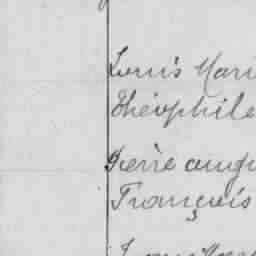 Louis Mari
Théophile
Pierre augu
François